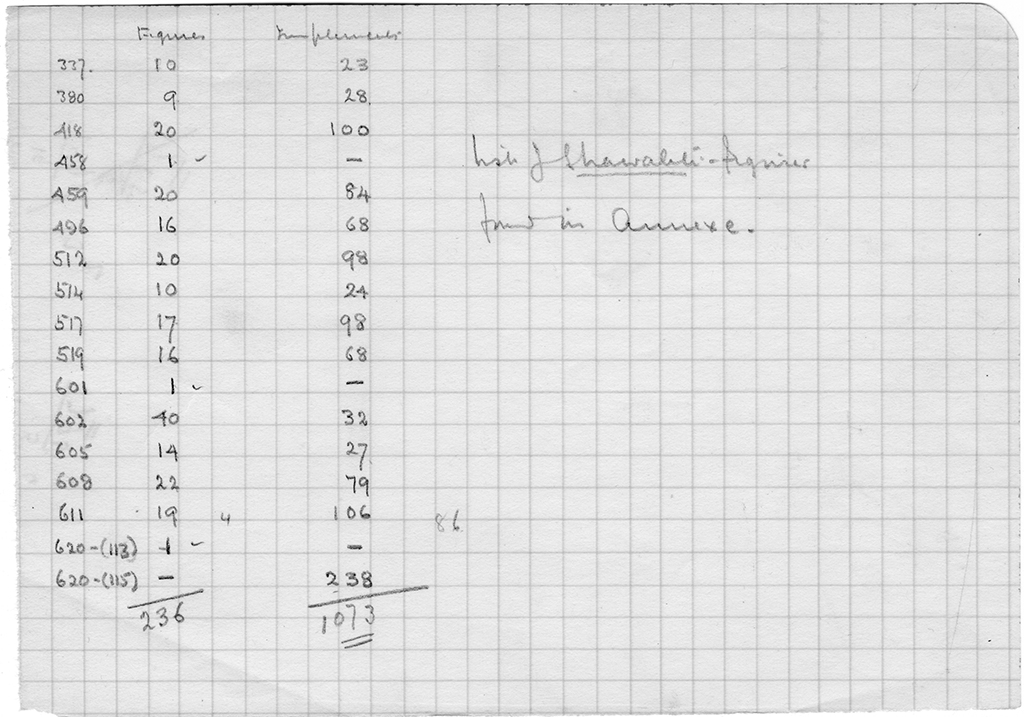 Figures Implements
337. 10 23
380 9 28.
418 20 100
458 1 ✓ —
459 20 84
496 16 68
512 20 98
514 10 24
517 17 98
519 16 68
601 1 ✓ —
602 40 32
605 14 27
608 22 79
611 19 4 106 86
620-(113) 1 ✓ —
620-(115) — 238
236 1073
List of Shawabti-figures
found in Annexe.